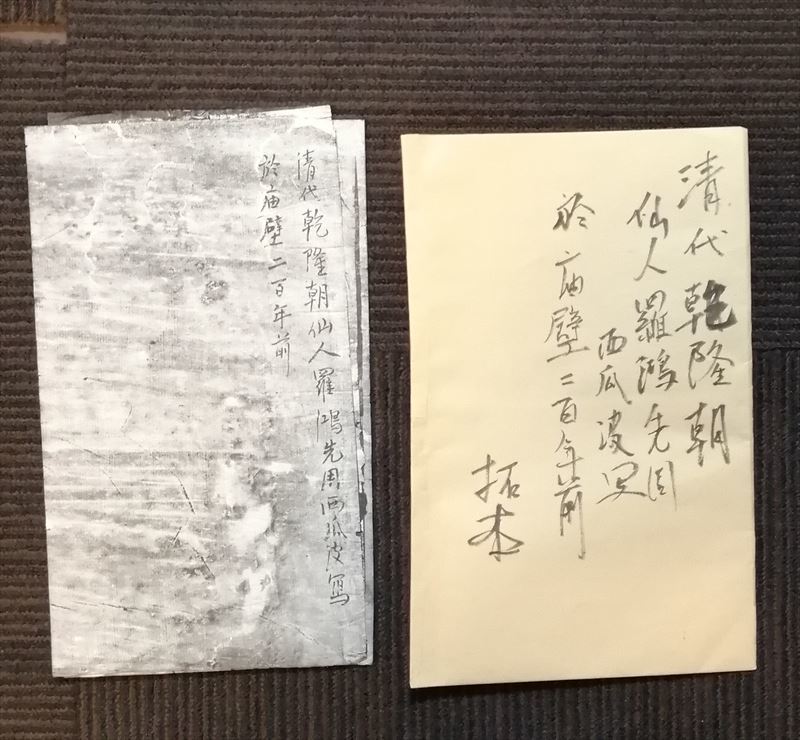 清代乾隆朝仙人羅鴻先用西瓜波寫
於庙壁二百年前
清代乾隆朝
仙人羅鴻先用
西瓜波写
於庙壁二百年前
拓本